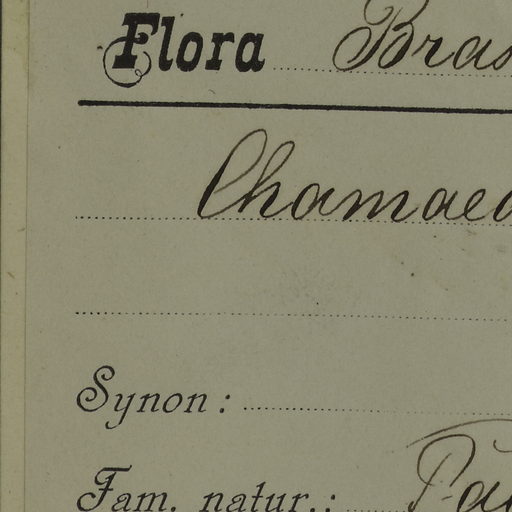 Flora Bras
Chamaed
Synon:
Fam. natur.: Pal